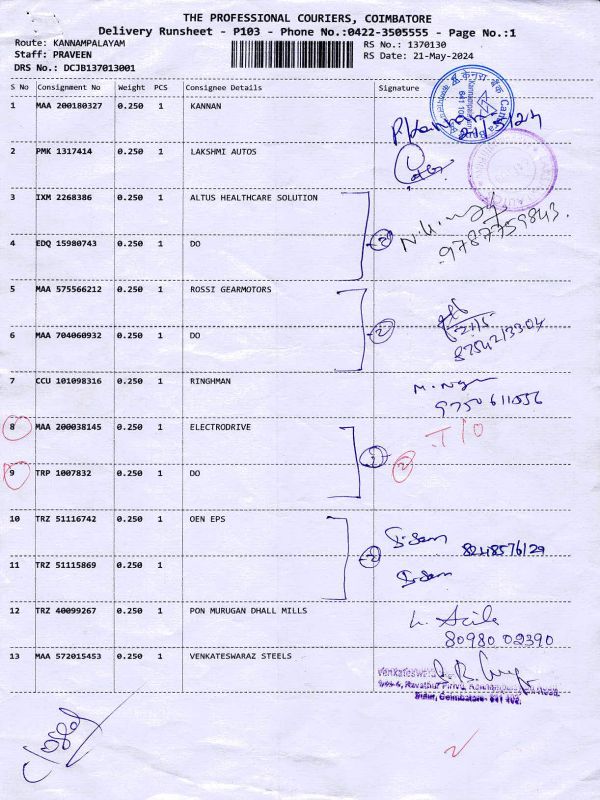 THE PROFESSIONAL COURIERS, COIMBATORE
Delivery Runsheet - P103 - Phone No.:0422-3505555 - Page No.:1
Route: KANNAMPALAYAM
RS No.: 1370130
Staff: PRAVEEN
RS Date: 21-May-2024
DRS No.: DCJB137013001
S No Consignment No Weight PCS Consignee Details Signature
1 MAA 200180327 0.250 1 KANNAN
2 PMK 1317414 0.250 1 LAKSHMI AUTOS
3 IXM 2268386 0.250 1 ALTUS HEALTHCARE SOLUTION
4 EDQ 15980743 0.250 1 DO
9787759843.
5 MAA 575566212 0.250 1 ROSSI GEARMOTORS
6 MAA 704060932 0.250 1 DO
7 CCU 101098316 0.250 1 RINGHMAN
8 MAA 200038145 0.250 1 ELECTRODRIVE
9 TRP 1007832 0.250 1 DO
10 TRZ 51116742 0.250 1 OEN EPS
11 TRZ 51115869 0.250 1
12 TRZ 40099267 0.250 1 PON MURUGAN DHALL MILLS
80980 02390
13 MAA 572015453 0.250 1 VENKATESWARAZ STEELS